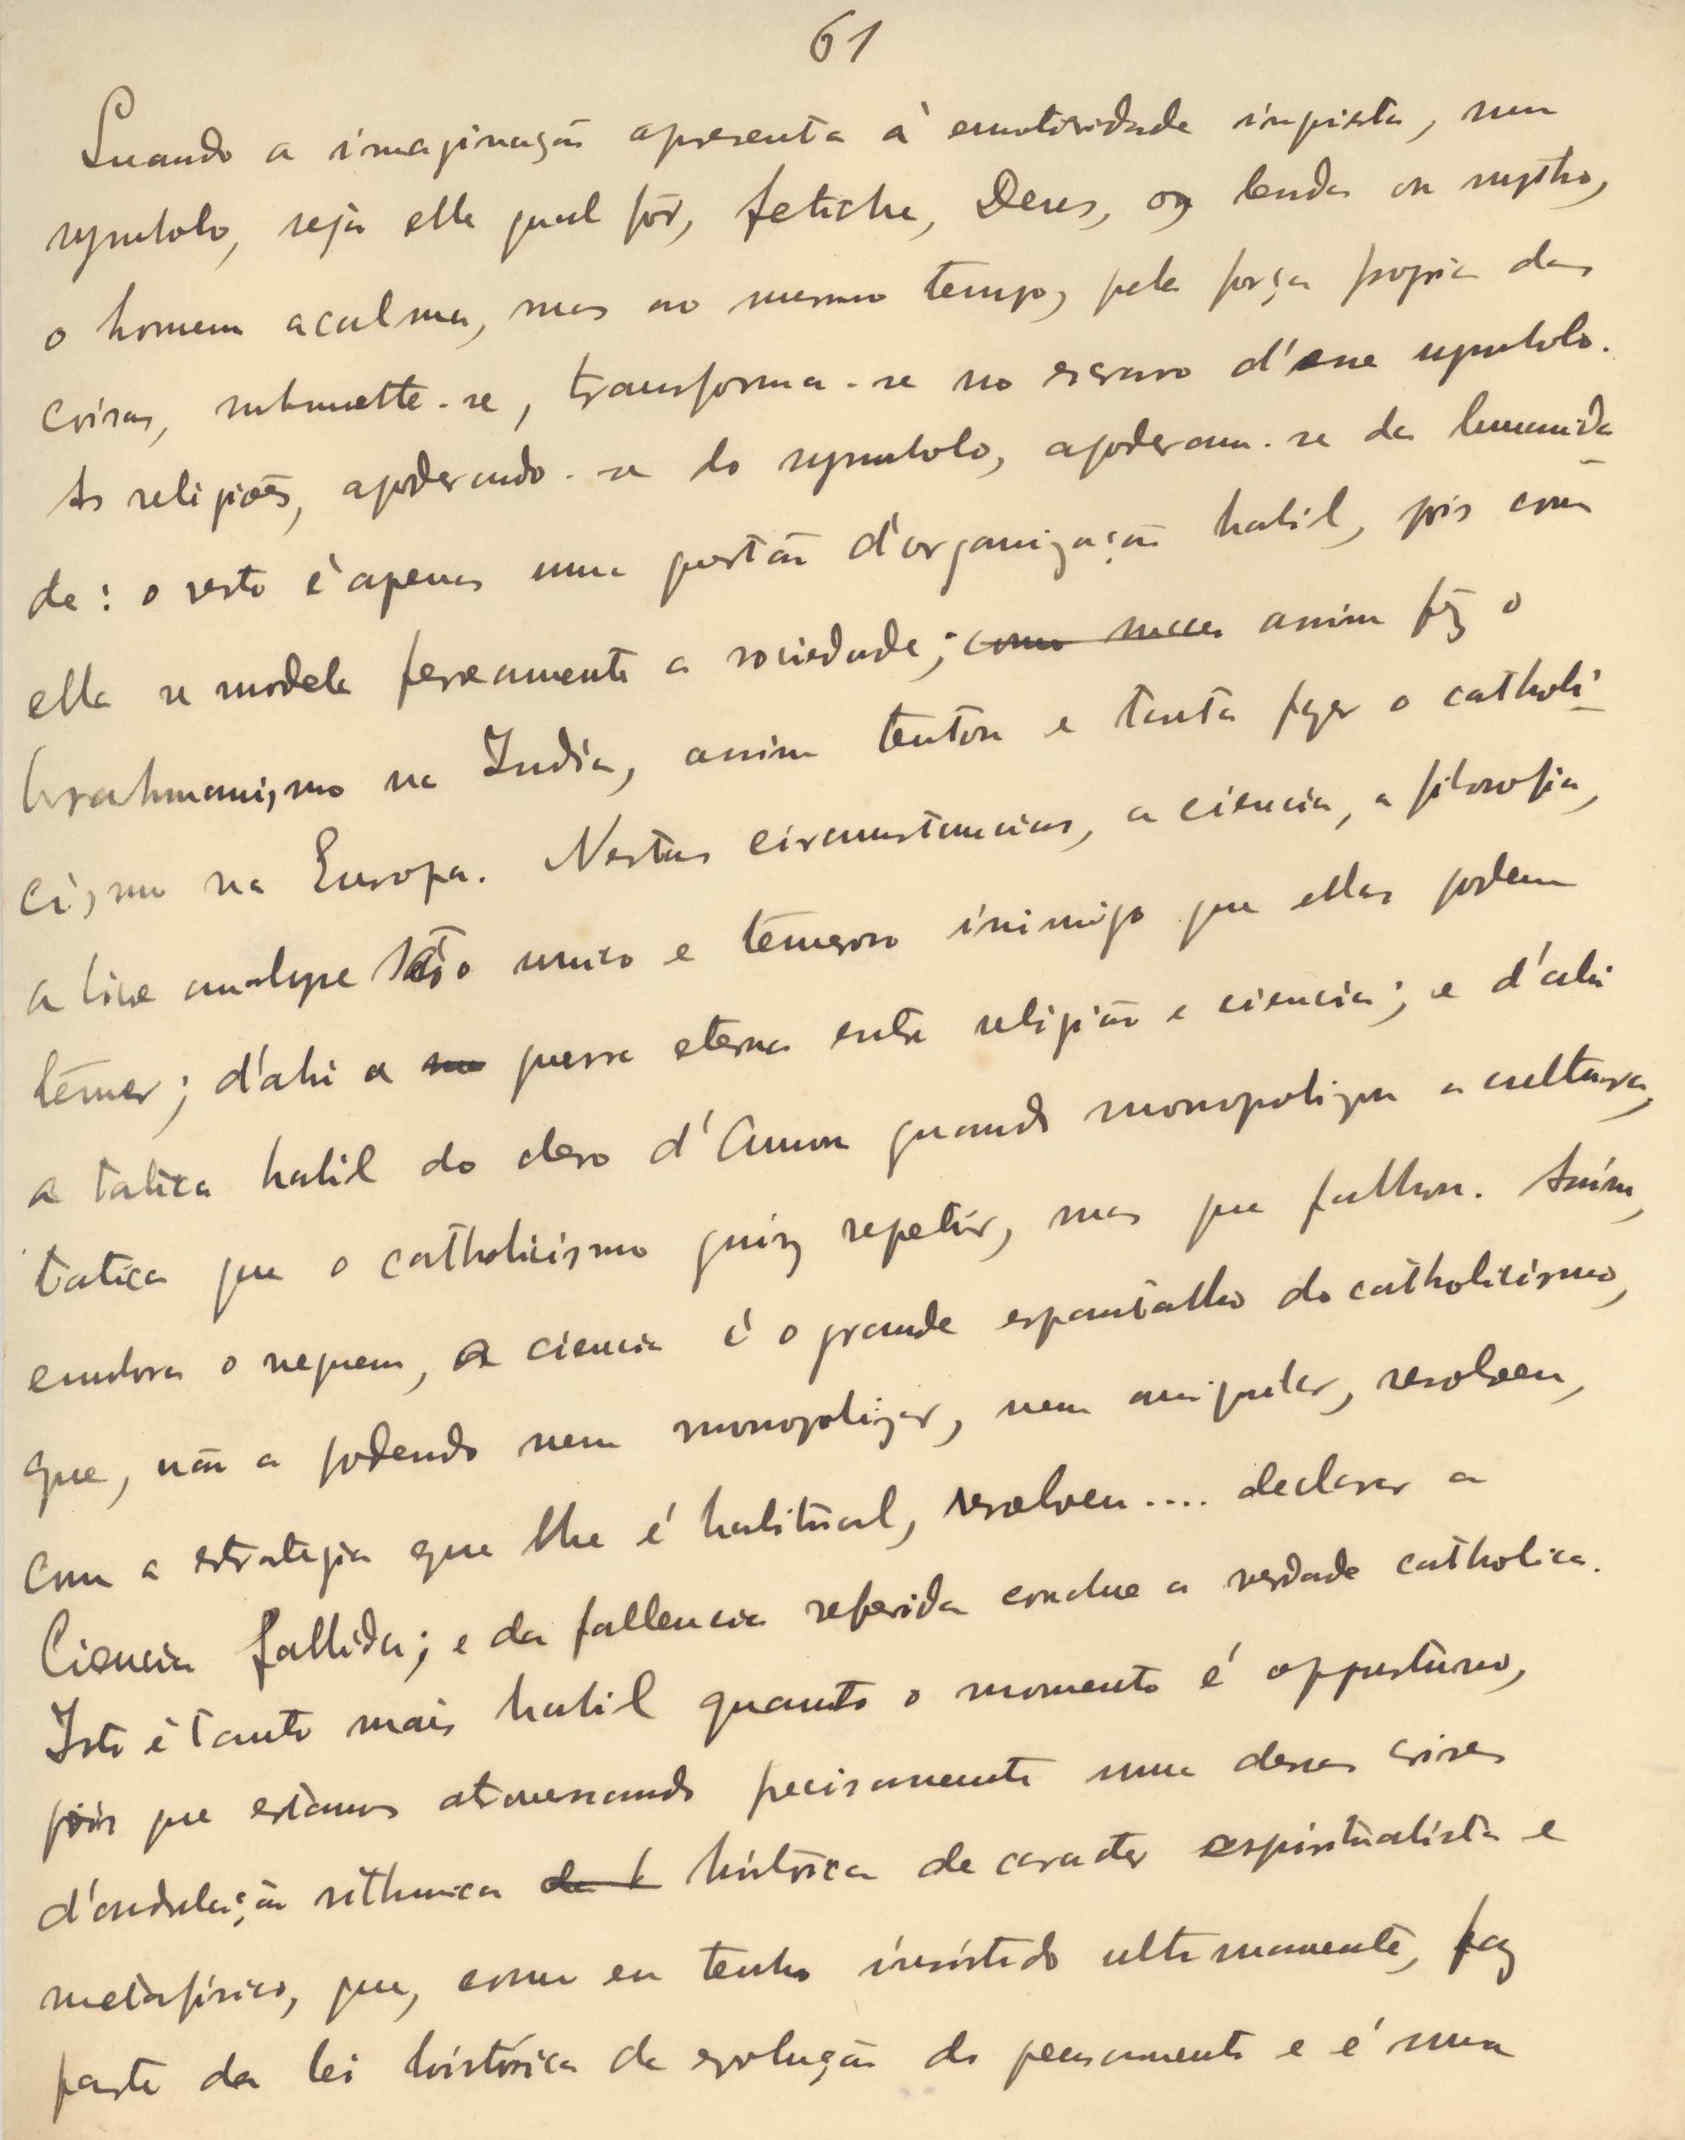 61
Quando a imaginação apresenta á emotividade inquieta, um
symbolo, seja elle qual fôr, fetiche, Deus, ou lenda ou mytho,
o homem acalma, mas ao mesmo tempo, pela força propria das
coisas, submette-se, transforma-se no escravo d'esse symbolo.
As religiões, apoderando-se do symbolo, apoderam-se da humanida-
de: o resto é apenas uma questão d'organização habil, pois com
ella se modela ferreamente a sociedade; como succes assim fez o
brahmanismo na India, assim tentou e tenta fazer o catholi-
cismo na Europa. Nestas circumstancias, a ciencia, a filosofia,
a livre analyse são o unico e temeroso inimigo que ellas podem
temer; d'ahi a guerra eterna entre religião e ciencia; e d'ahi
a tatica habil do clero d'Amon quando monopolizou a cultura,
tatica que o catholicismo quiz repetir, mas que falhou. Assim,
embora o neguem, a ciencia é o grande espantalho do catholicismo,
que, não a podendo nem monopolizar, nem aniquilar, resolveu,
com a estrategia que lhe é habitual, resolveu.... declarar a
Ciencia fallida; e da fallencia referida conclue a verdade catholica.
Isto é tanto mais habil quanto o momento é opportuno,
pois que estamos atravessando precisamente uma dessas crises
d'ondulação rithmica da h historica de caracter espiritualista e
metafisico, que, como eu tenho insistido ultimamente, faz
parte da lei historica da evolução do pensamento e é uma